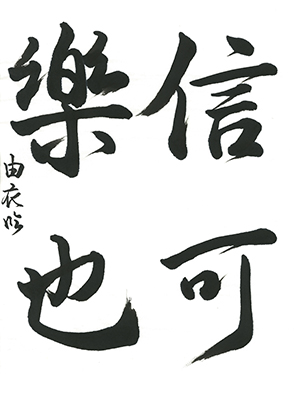 信可
樂也
由衣臨